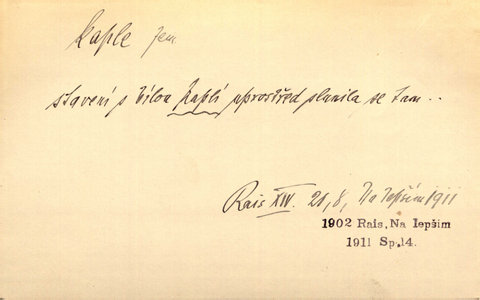 Kaple fem.
stavení s bílou kaplí uprostřed planila se tam..
Rais XIV. 21,8, Na lepším 1911
1902 Rais, Na lepším
1911 Sp.14.